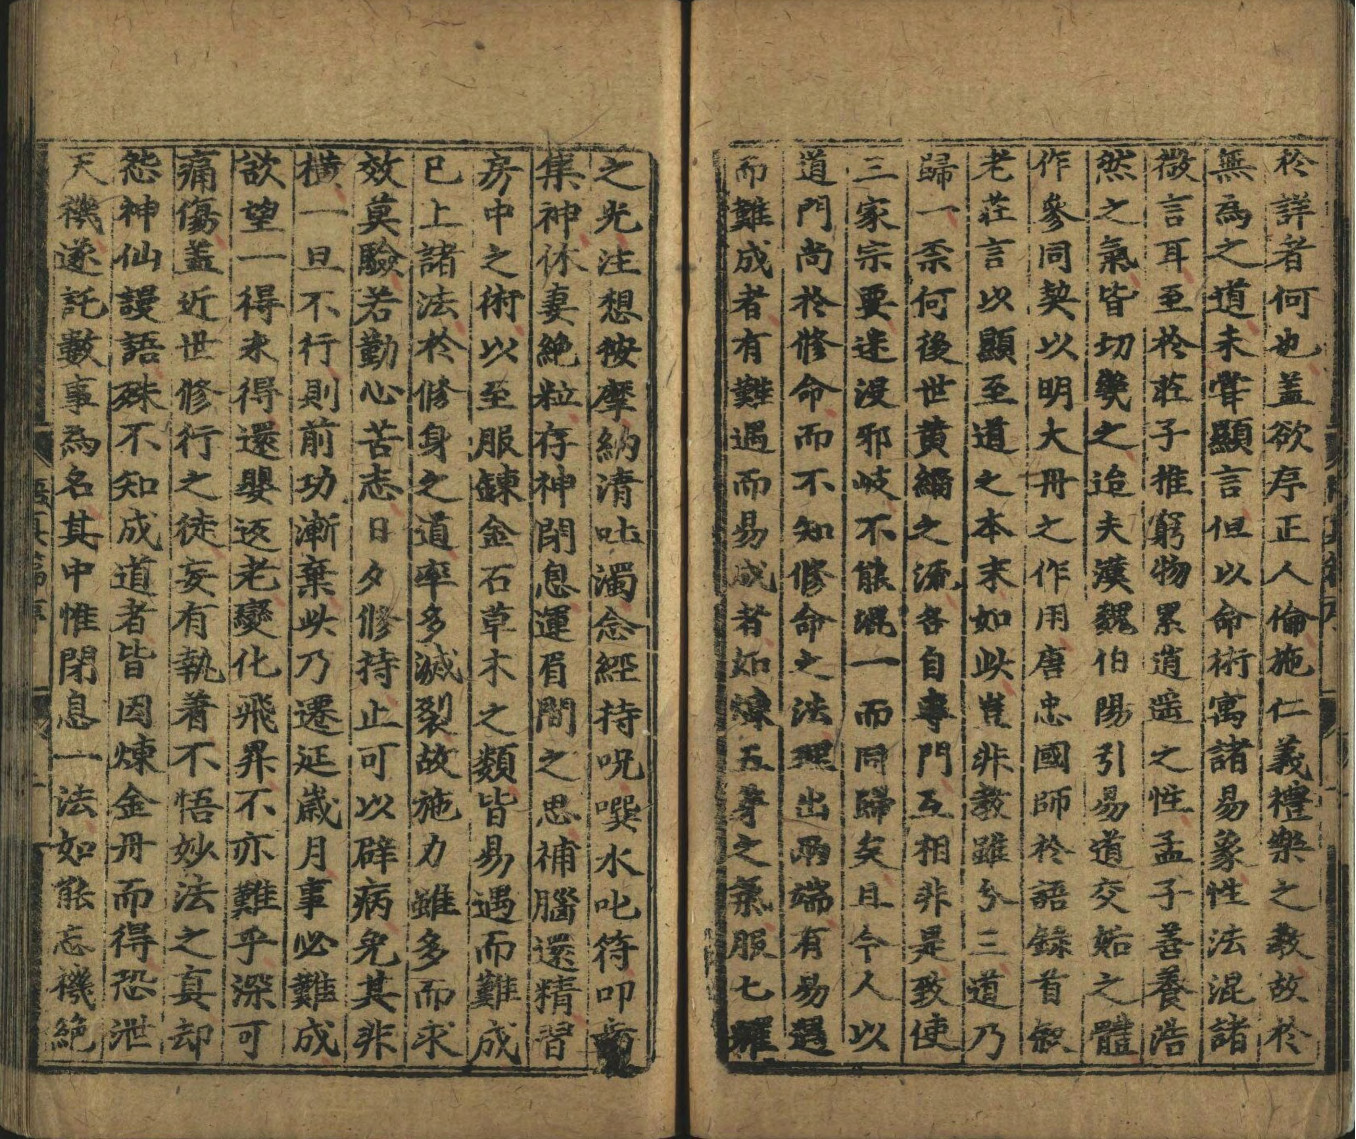 於詳者何也蓋欲序正人倫施仁義禮樂之教故於
無爲之道未甞顯言但以命術寓諸易象性法混諸
微言耳至於莊子推窮物累逍遥之性孟子善養浩
然之氣皆切幾之迨夫漢魏伯陽引易道交姤之體
作參同契以明大丹之作用唐忠國師於語錄首敘
老莊言以顯至道之本末如此豈非教雖分三道乃
歸一柰何後世黄緇之流各自專門互相非是致使
三家宗要迷没邪岐不能混一而同歸矣且今人以
道門尚於修命而不知修命之法理出兩端有易遇
而難成者有難遇而易成者如煉五芽之氣服七耀
之光注想按摩納清吐濁念經持呪噀水叱符叩齒
集神休妻絶粒存神閉息運眉間之思補腦還精習
房中之術以至服鍊金石草木之類皆易遇而難成
已上諸法於修身之道率多滅裂故施力雖多而求
效莫驗若勤心苦志日夕修持止可以辟病免其非
横一旦不行則前功漸棄此乃遷延歲月事必難成
欲望一得永得還嬰返老變化飛昇不亦難乎深可
痛傷蓋近世修行之徒妄有執着不悟妙法之真却
怨神仙謾語殊不知成道者皆因煉金丹而得恐泄
天機遂託數事爲名其中惟閉息一法如能忘機絶